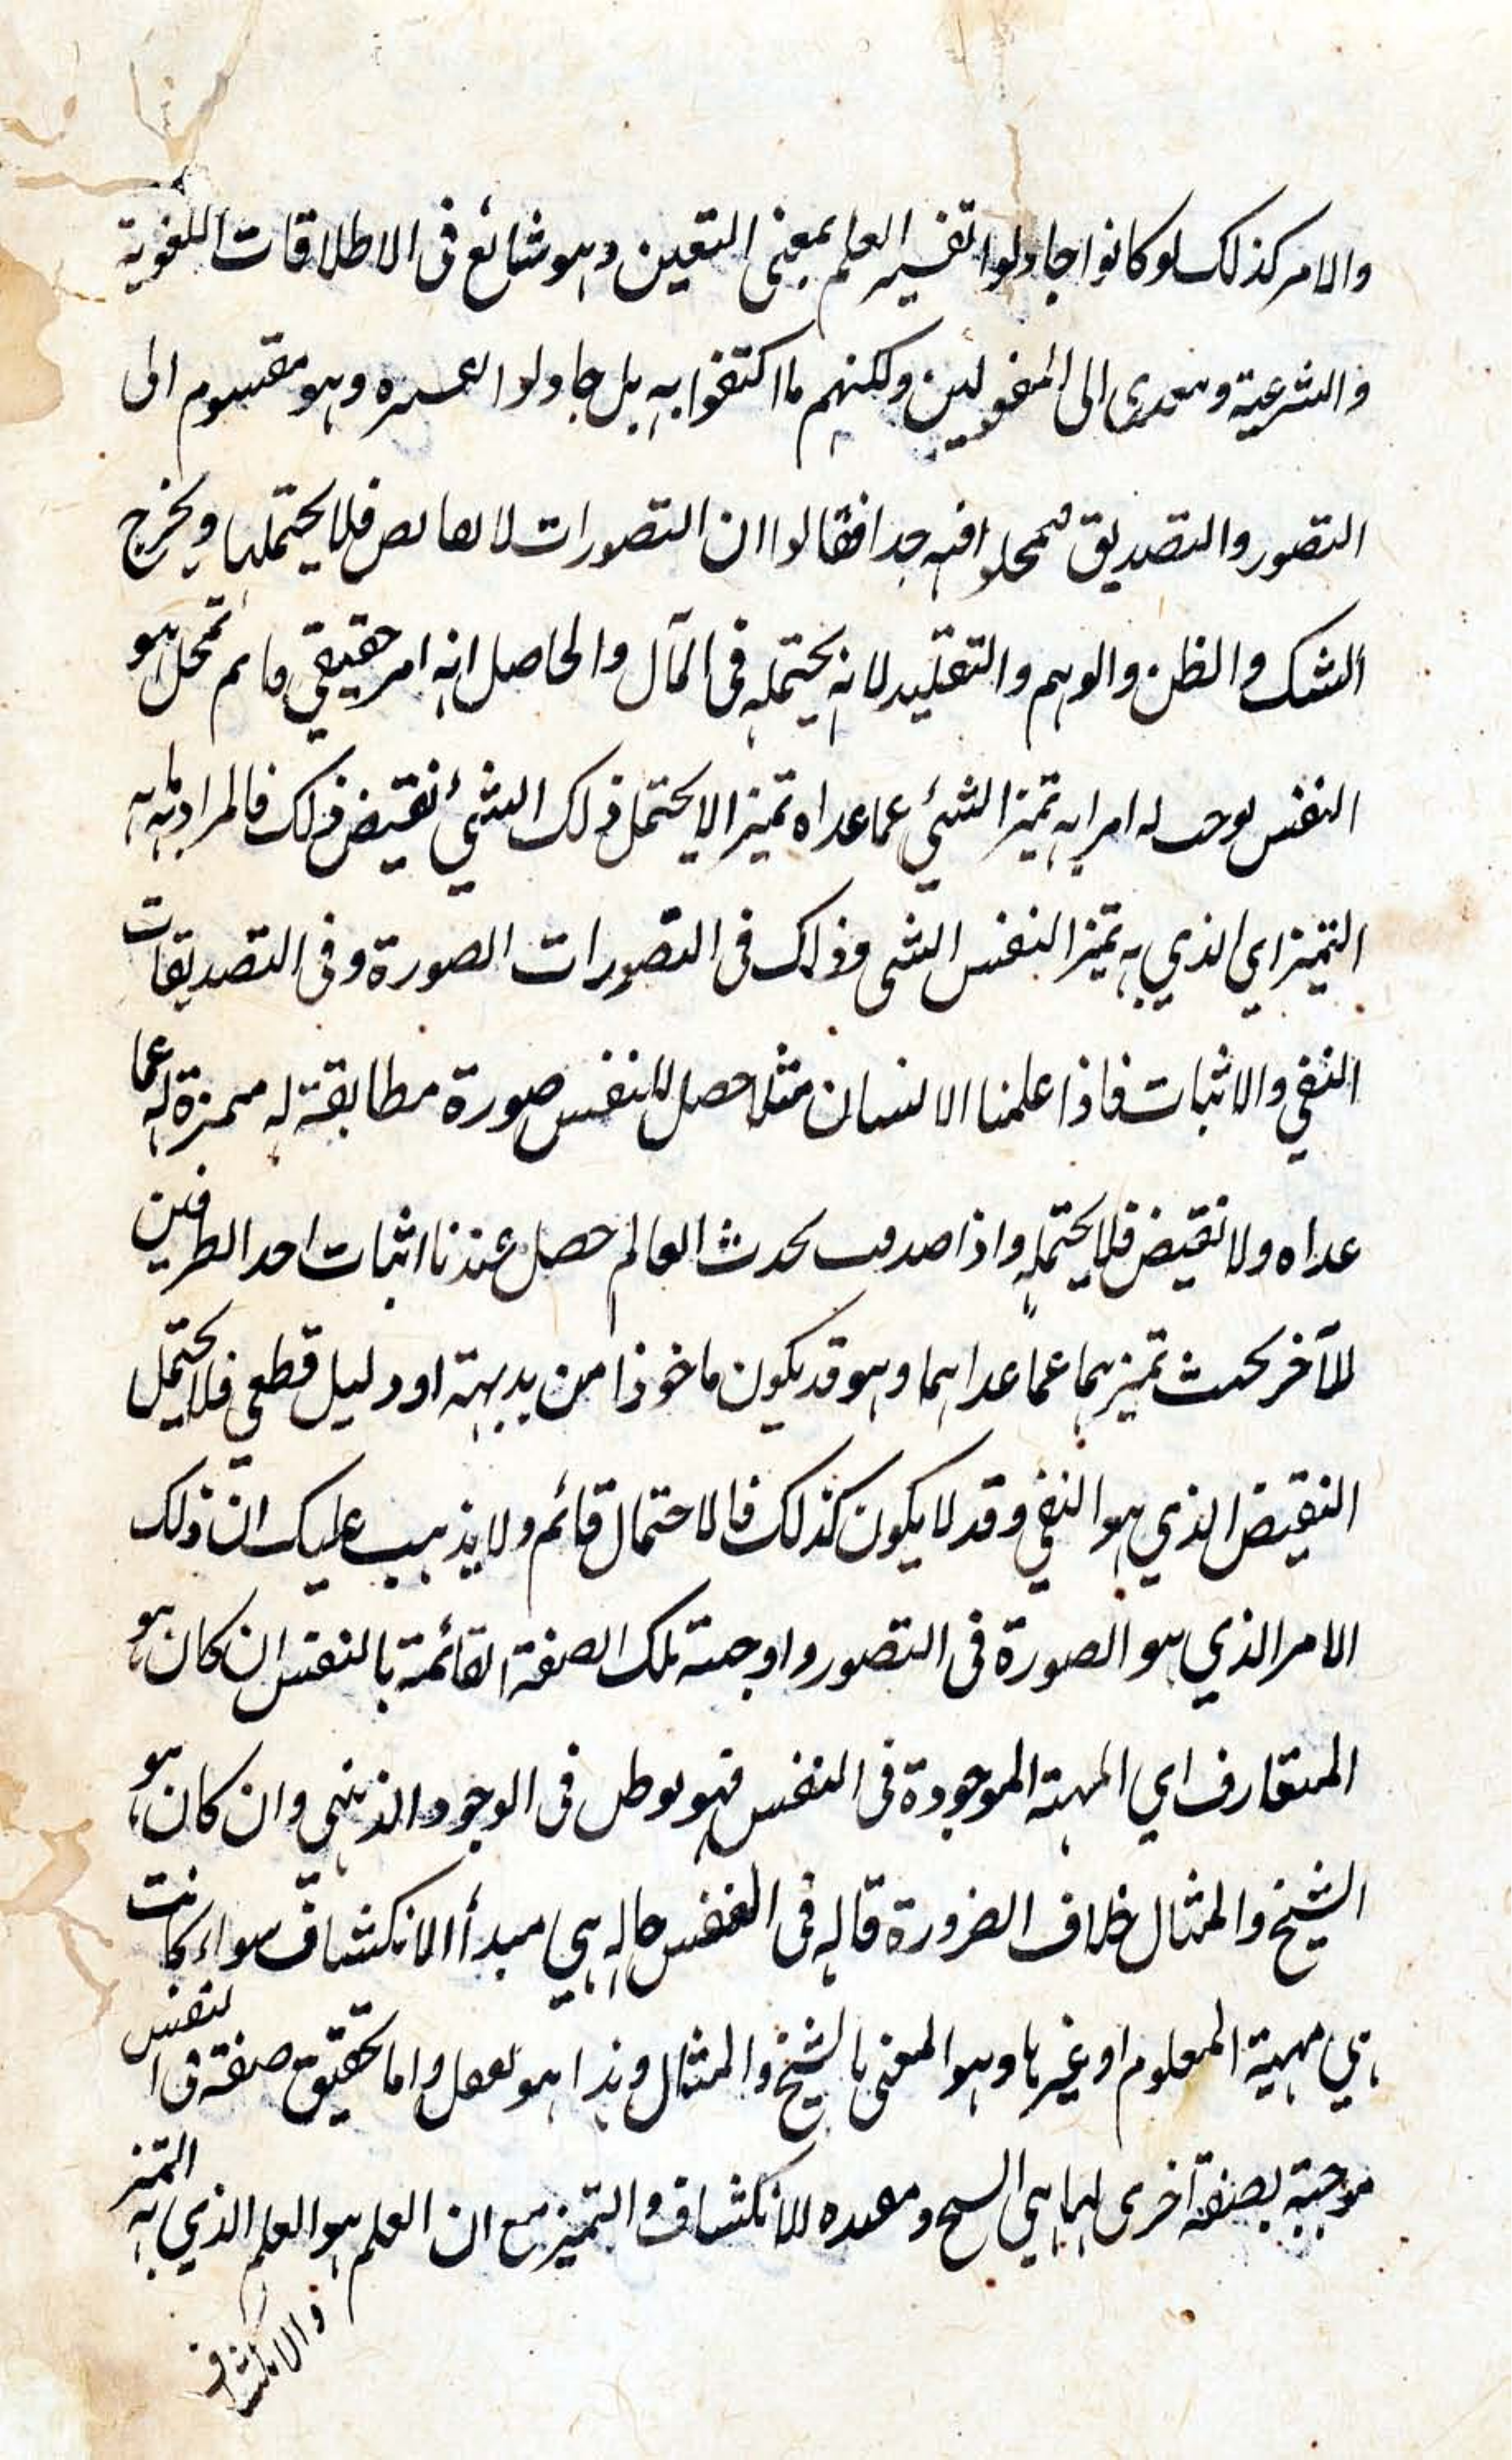 والامر كذلك لو كانوا حاولوا تفسير العلم بمعنى التعين وهو شائع فى الاطلاقات اللغوية
والشرعية ومتعدى الى المفعولين ولكنهم ما اكتفوا به بل حاولوا وهو مقسوم الى
التصور والتصديق فيه جدا فقالوا ان التصورات لا فلا يحتملها ويخرج
الشك والظن والوهم والتقليد لانه يحتمله فى المآل والحاصل انه امر حقيقي هو
النفس يوجب له امرا به تميز الشئ عما عداه تميزا لا يحتمل ذلك الشئ نقيض ذلك فالمراد به
التميز اي الذي به تميز النفس الشى وذلك فى التصورات الصورة وفى التصديقات
النفي والاثبات فاذا علمنا الانسان مثلا حصل للنفس صورة مطابقة له مميزة له عما
عداه ولا نقيض فلا يحتمله واذا صدقت بحدث العالم حصل عندنا اثبات احد الطرفين
للآخر بحيث تميزهما عما عداهما وهو قد يكون ماخوذا من بديهة او دليل قطعي فلا يحتمل
النقيض الذي هو النفي وقد لا يكون كذلك فالاحتمال قائم ولا يذهب عليك ان ذلك
الامر الذي هو الصورة فى التصور واوجبته تلك الصفة القائمة بالنفس ان كان هو
المتعارف اي المهية الموجودة فى النفس فهو فى الوجود الذهني وان كان هو
الشبح والمثال خلاف الضرورة فى النفس حاله هي مبدأ الانكشاف سواء كانت
هي مهية المعلوم او غيرها وهو المعنى بالشبح والمثال وهذا هو واما تحقيق صفة فى النفس
موجبة بصفة آخرى لها هي الشبح للانكشاف والتميز مع ان العلم هو العلم الذي به التميز
والانكشاف